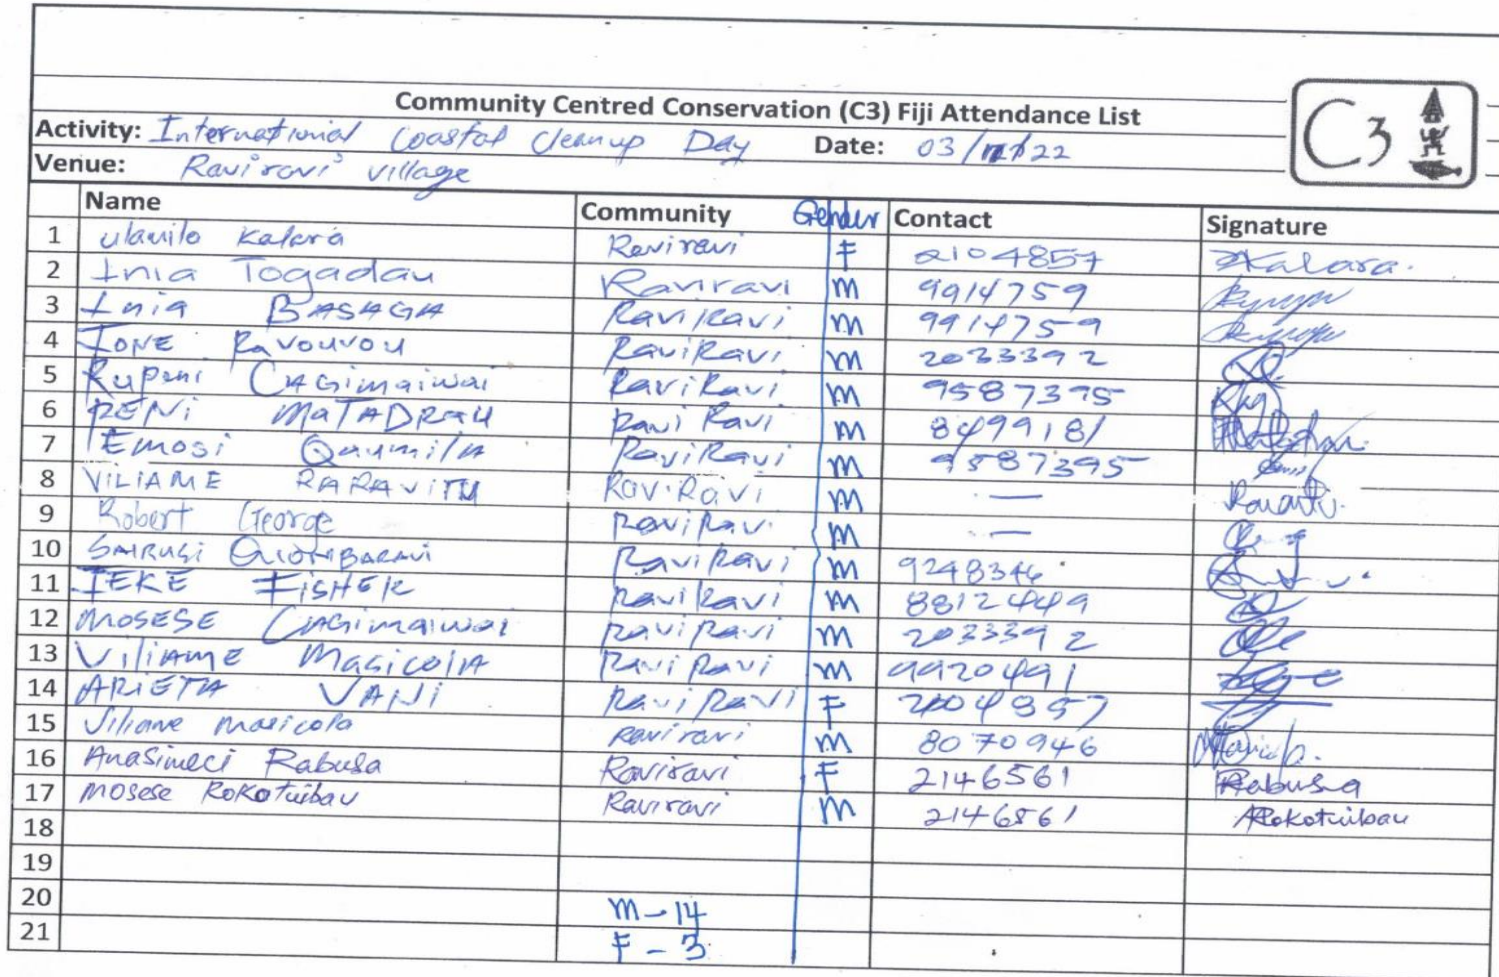 Community Centred Conservation (C3) Fiji Attendance List
C3
Activity: International Coastal Cleanup Day Date: 03/ /22
Venue: Raviravi village
Name Community Gender Contact Signature
1 Kalara Raviravi F 2104857 Kalara.
2 Inia Togadau Raviravi m 9914759
3 Inia BASAGA RaviRavi m 9914759
4 IONE Ravouvou RaviRavi m 2033392
5 Rupeni CAGimaiwai RaviRavi m 9587395
6 PENi MATADRAU Ravi Ravi m 8499181
7 Emosi RaviRavi m 9587395
8 VILIAME RARAViTU RaviRavi m —
9 Robert George RaviRavi m —
10 RaviRavi m 9248346
11 IEKE FISHER RaviRavi m 8812449
12 MOSESE CAGimaiwai RaviRavi m 2033392
13 ViliAME MasicolA RaviRavi m 9920491
14 ARIETA VANi RaviRavi F
15 Viliame masicola raviravi m 8070946
16 AnaSimeci Rabusa Raviravi F 2146561 Rabusa
17 mosese Rokotuibau Raviravi m 2146561 Rokotuibau
18
19
20 m - 14
21 F - 3